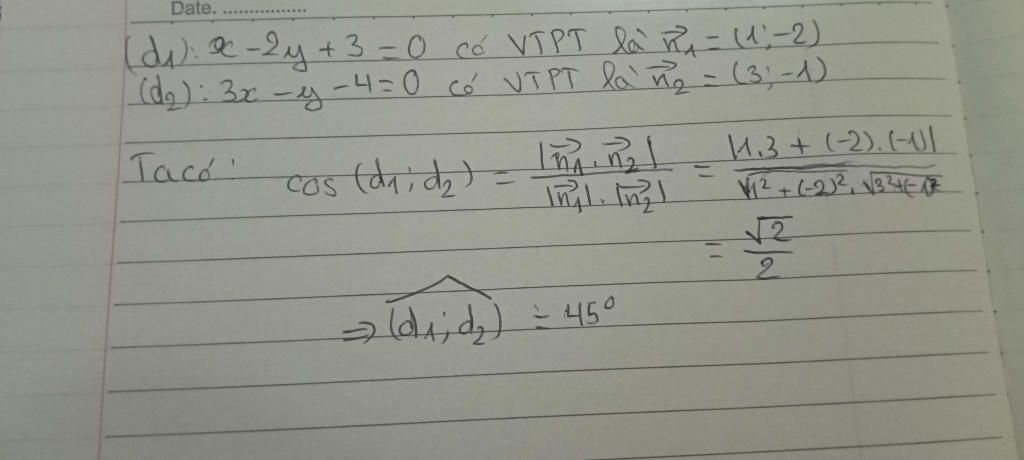 Date. ................
(d₁): x - 2y + 3 = 0 có VTPT là n⃗₁ = (1; -2)
(d₂): 3x - y - 4 = 0 có VTPT là n⃗₂ = (3; -1)
Ta có: cos (d₁; d₂) = |n⃗₁ . n⃗₂| / |n⃗₁| . |n⃗₂| = |1.3 + (-2).(-1)| / √1² + (-2)² . √3² + (-1)²
= √2 / 2
⇒ (d₁; d₂) = 45⁰